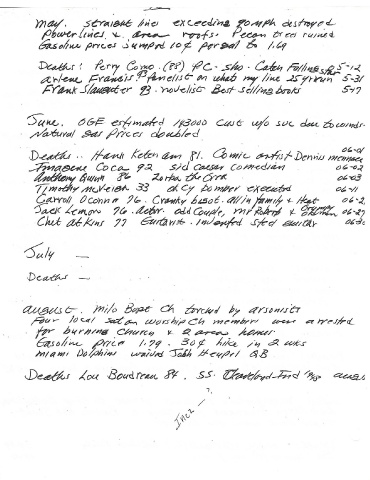 May. straight line exceeding 90 mph destroyed
Power lines & area roofs. Pecan trees ruined
Gasoline prices jumped 10¢ per gal to 1.69
Deaths! Perry Como (88) PC. sho. Catch Falling Star 5-12
Arlene Francis 93 panelist on whats my line 25 yr run 5-31
Frank Slaughter 93 novelist Best selling books 5-17
June. OGE estimated 143000 cust w/o svc due to winds.
Natural gas prices doubled
Deaths.. Hank Ketcham 81. Comic artist Dennis menace 06-01
Imogene Coca 92 sid Caesar comedian 06-02
Anthony Quinn 86 Zorba the Greek 06-03
Timothy McVeigh 33 okcy bomber executed 06-11
Carroll OConnor 76. Cranky bigot. all in family & Heat 06-2
Jack Lemmon 76. actor. odd Couple, mr Roberts & Grumpy Old Men 06-27
Chet Atkins 77 Guitarist. 06-30
July —
Deaths —
August. Milo Bapt Ch torched by arsonists
Four local satan worship Ch members were arrested
for burning church & 2 area homes
Gasoline price 1.79. 30¢ hike in 2 wks
Miami Dolphins waived Josh Heupel QB
Deaths Lou Boudreau 84. SS. Cleveland-Ind augu